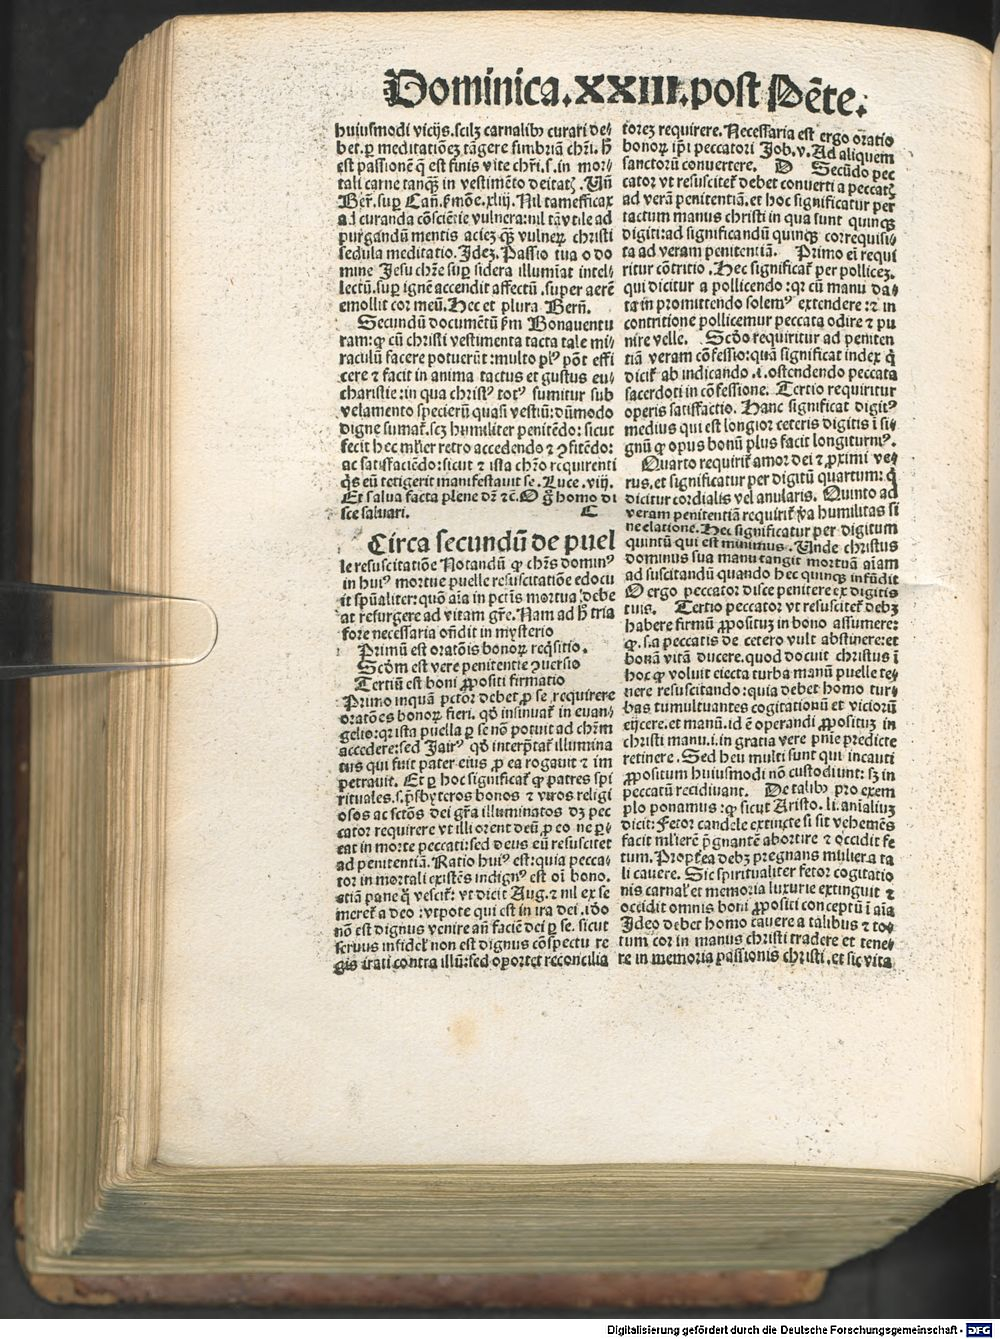 Dominica.XXIII.post Pẽte.
huiusmodi vicijs.scilꝫ carnalibꝰ curari de-
bet.ꝑ meditatiõeꝫ tãgere fimbriã chr̃i. h̃
est passionẽ q̃ est finis vite chr̃i.s.in mor-
tali carne tanqꝫ̃ in vestimẽto deitatꝭ. Uñ
Ber̃.suꝑ Cañ.ẜmõe.xliij. Nil tamefficax
ad curanda cõsciẽtie vulnera:nil tãvtile ad
purgandũ mentis acieꝫ qꝫ̃ vulneꝝ christi
sedula meditatio. Jdeꝫ. Passio tua o do
mine Jesu chr̃e suꝑ sidera illumĩat intel-
lectũ.suꝑ ignẽ accendit affectũ.super aerẽ
emollit cor meũ. Hec et plura Berñ.
Secundũ documẽtũ ẜm Bonauentu
ram:ꝙ cũ christi vestimenta tacta tale mi-
raculũ facere potuerũt:multo plꝰ põt effi
cere ⁊ facit in anima tactus et gustus eu-
charistie:in qua christꝰ totꝰ sumitur sub
velamento specierũ quasi vestiũ:dũmodo
digne sumat̃.scꝫ humiliter penitẽdo: sicut
fecit hec mĩier retro accedendo ⁊ ꝯfitẽdo:
ac satisfaciẽdo:sicut ⁊ ista chr̃o requirenti
qꝭ eũ tetigerit manifestauit se. Luce.viij.
Et salua facta plene dr̃ ⁊c. O g̃ homo di
sce saluari. C
Circa secundũ de puel
le resuscitatiõe Notandũ ꝙ chr̃s dominꝰ
in huiꝰ mortue puelle resuscitatiõe edocu
it spũaliter:quõ aĩa in pctĩs mortua debe
at resurgere ad vitam gr̃e. Nam ad h̃ tria
fore necessaria oñdit in mysterio
Primũ est oratõis bonoꝝ req̃sitio.
Scðm est vere penitentie ꝯuersio
Tertiũ est boni ꝓpositi firmatio
Primo inquã pctor debet ꝑ se requirere
oratões bonoꝝ fieri. qð insinuat̃ in euan-
gelio:qꝛ ista puella ꝑ se nõ potuit ad chr̃m
accedere:sed Jairꝰ qð interp̃tat̃ illumina
tus qui fuit pater eius ꝓ ea rogauit ⁊ im
petrauit. Et ꝑ hoc significat̃ ꝙ patres spi
rituales.s.p̃sbyteros bonos ⁊ viros religi
osos ac sctõs dei gr̃a illuminatos dꝫ pec
cator requirere vt illi orent deũ ꝓ eo ne ꝑi-
eat in morte peccati:sed deus eũ resuscitet
ad penitentiã. Ratio huiꝰ est:quia pecca-
tor in mortali existẽs indignꝰ est oĩ bono.
etiã pane q̃ vescit̃: vt dicit Aug.⁊ nil ex se
meret̃ a deo:vtpote qui est in ira dei.iðo
nõ est dignus venire añ faciẽ dei ꝑ se. sicut
seruus infidel̃ non est dignus cõspectu re
gis irati contra illũ:sed oportet reconcilia
toreꝫ requirere. Necessaria est ergo orãtio
bonoꝝ ip̃i peccatori Job.v. Ad aliquem
sanctorũ conuertere. D Secũdo pec
cator vt resuscitet̃ debet conuerti a peccatꝭ
ad verã penitentiã.et hoc significatur per
tactum manus christi in qua sunt quinqꝫ
digiti:ad significandũ quinqꝫ correquisi-
ta ad veram penitentiã. Primo eĩ requi
ritur cõtritio. Hec significat̃ per polliceꝫ.
qui dicitur a pollicendo:qꝛ cũ manu da-
ta in promittendo solemꝰ extendere:⁊ in
contritione pollicemur peccata odire ⁊ pu
nire velle. Scðo requiritur ad peniten
tiã veram cõfessio:quã significat index q̃
dicit̃ ab indicando.i.ostendendo peccata
sacerdoti in cõfessione. Tertio requiritur
operis satisfactio. Hanc significat digitꝰ
medius qui est longior ceteris digitis ĩ si-
gnũ ꝙ opus bonũ plus facit longiturnꝰ.
Quarto requirit̃ amor dei ⁊ ꝓximi ve-
rus.et significatur per digitũ quartum:q̃
dicitur cordialis vel anularis. Quinto ad
veram penitentiã requirit̃ v̾a humilitas si
ne elatione. Hec significatur per digitum
quintũ qui est minimus. Unde christus
dominus sua manu tangit mortuã aĩam
ad suscitandũ quando hec quinqꝫ infũdit
O ergo peccator disce penitere ex digitis
tuis. Tertio peccator vt resuscitet̃ debꝫ
habere firmũ ꝓpositũꝫ in bono assumere:
ꝙ.s.a peccatis de cetero vult abstinere:et
bonã vitã ducere.quod docuit christus ĩ
hoc ꝙ voluit eiecta turba manũ puelle te-
nere resuscitando:quia debet homo tur-
bas tumultuantes cogitationũ et viciorũ
eijcere.et manũ.id ẽ operandi ꝓpositũꝫ in
christi manu.i.in gratia vere pñie predicte
retinere. Sed heu multi sunt qui incauti
ꝓpositum huiusmodi nõ custodiunt: sꝫ in
peccatũ recidiuant. De talibꝰ pro exem
plo ponamus:ꝙ sicut Aristo.li.aĩaliuꝫ
dicit: Fetor candele extincte si sit vehemẽs
facit mĩierẽ p̃gnantẽ abortire ⁊ occidit fe
tum. Propt̃ea debꝫ pregnans mulier a ta
li cauere. Sic spiritualiter fetor cogitatio
nis carnal̃ et memoria luxurie extinguit ⁊
occidit omnis boni ꝓpositi conceptũ ĩ aĩa
Jdeo debet homo cauere a talibus ⁊ to-
tum cor in manus christi tradere et tene-
re in memoria passionis christi.et sic vita
Digitalisierung gefördert durch die Deutsche Forschungsgemeinschaft - DFG